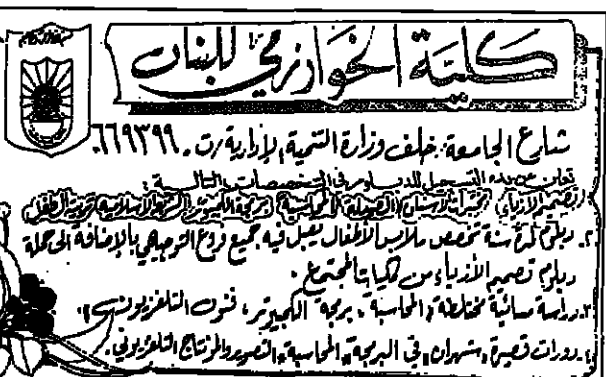 كلية الخوارزمي للبنات
شارع الجامعة، خلف وزارة التنمية الإدارية، ت. ٦٦٩٣٩٩.
تعلن عن بدء التسجيل للدبلوم في التخصصات التالية:
(تصميم الأزياء) (مختبرات الأسنان) (الصيدلة) (المحاسبة) (برمجة الكمبيوتر) (الشريعة الإسلامية) (تربية الطفل)
٢. دبلوم لمدة سنة تخصص ملابس الأطفال يقبل فيه جميع فروع التوجيهي بالإضافة إلى حملة
دبلوم تصميم الأزياء من كليات المجتمع.
٣. دراسة مسائية مختلطة (المحاسبة، برمجة الكمبيوتر، فنون التلفزيون).
٤. دورات قصيرة، شهران، في البرمجة، المحاسبة، التصوير والمونتاج التلفزيوني.